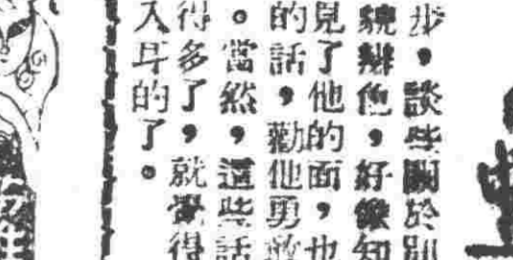 步，談些關於別
貌辦他，好像知
見了他的面，也
的話，勸他勇敢
。當然，這些話
得多了，就覺得
入耳的了。